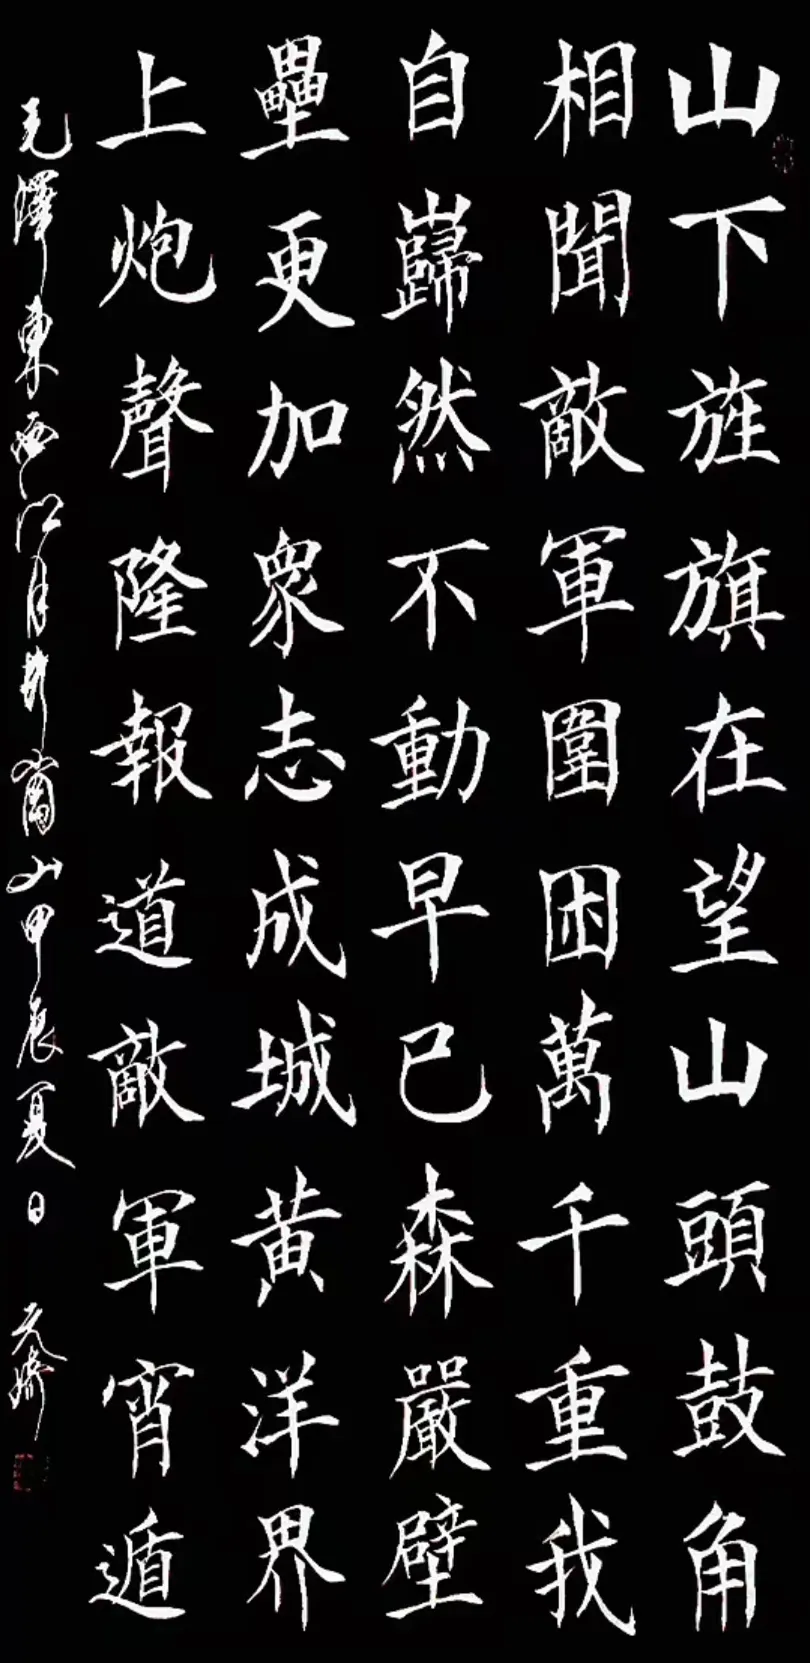 山下旌旗在望山頭鼓角
相聞敵軍圍困萬千重我
自巋然不動早已森嚴壁
壘更加衆志成城黄洋界
上炮聲隆報道敵軍宵遁
毛澤東西江月井崗山甲辰夏日